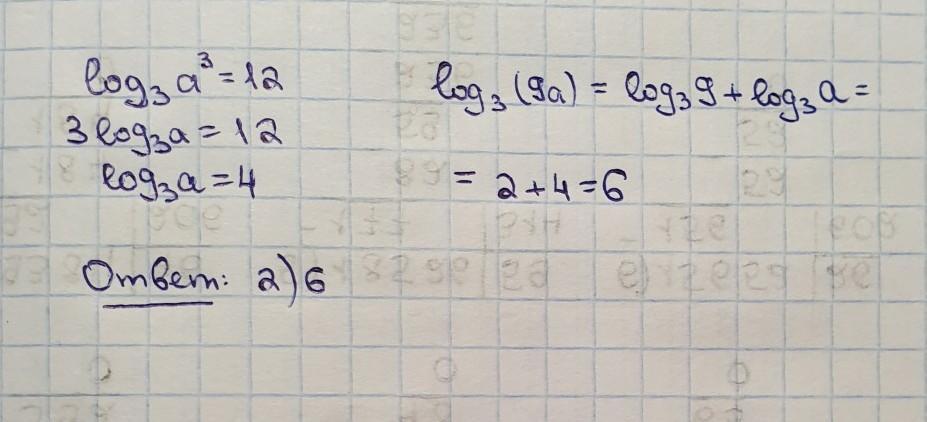 log₃a³=12
3log₃a=12
log₃a=4
log₃(9a) = log₃9+log₃a=
= 2+4=6
Ответ: 2)6